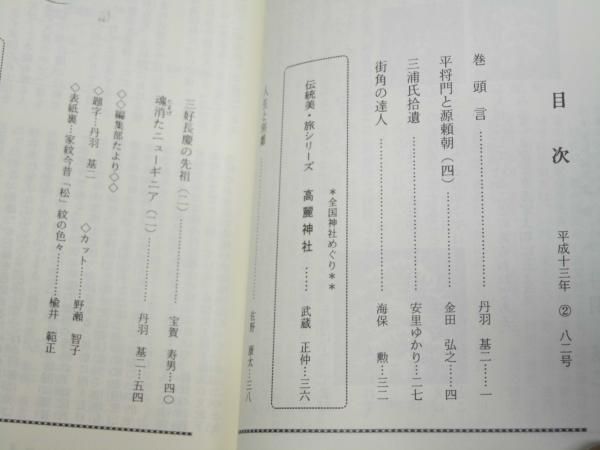 目次 平成十三年 ② 八二号
巻頭言……丹羽 基二……一
平将門と源頼朝(四)……金田 弘之……四
三浦氏拾遺……安里ゆかり……二七
街角の達人……海保 勲……三二
＊全国神社めぐり＊＊
伝統美・旅シリーズ 高麗神社……武蔵 正仲……三六
佐野 康太…三八
三好長慶の先祖(二)……宝賀 寿男…四〇
魂消たニューギニア(二)……丹羽 基二…五四
たまげ
◇◇編集部たより◇◇
◇題字…丹羽 基二 ◇カット……野瀬 智子
◇表紙裏…家紋今昔「松」紋の色々……楡井 範正